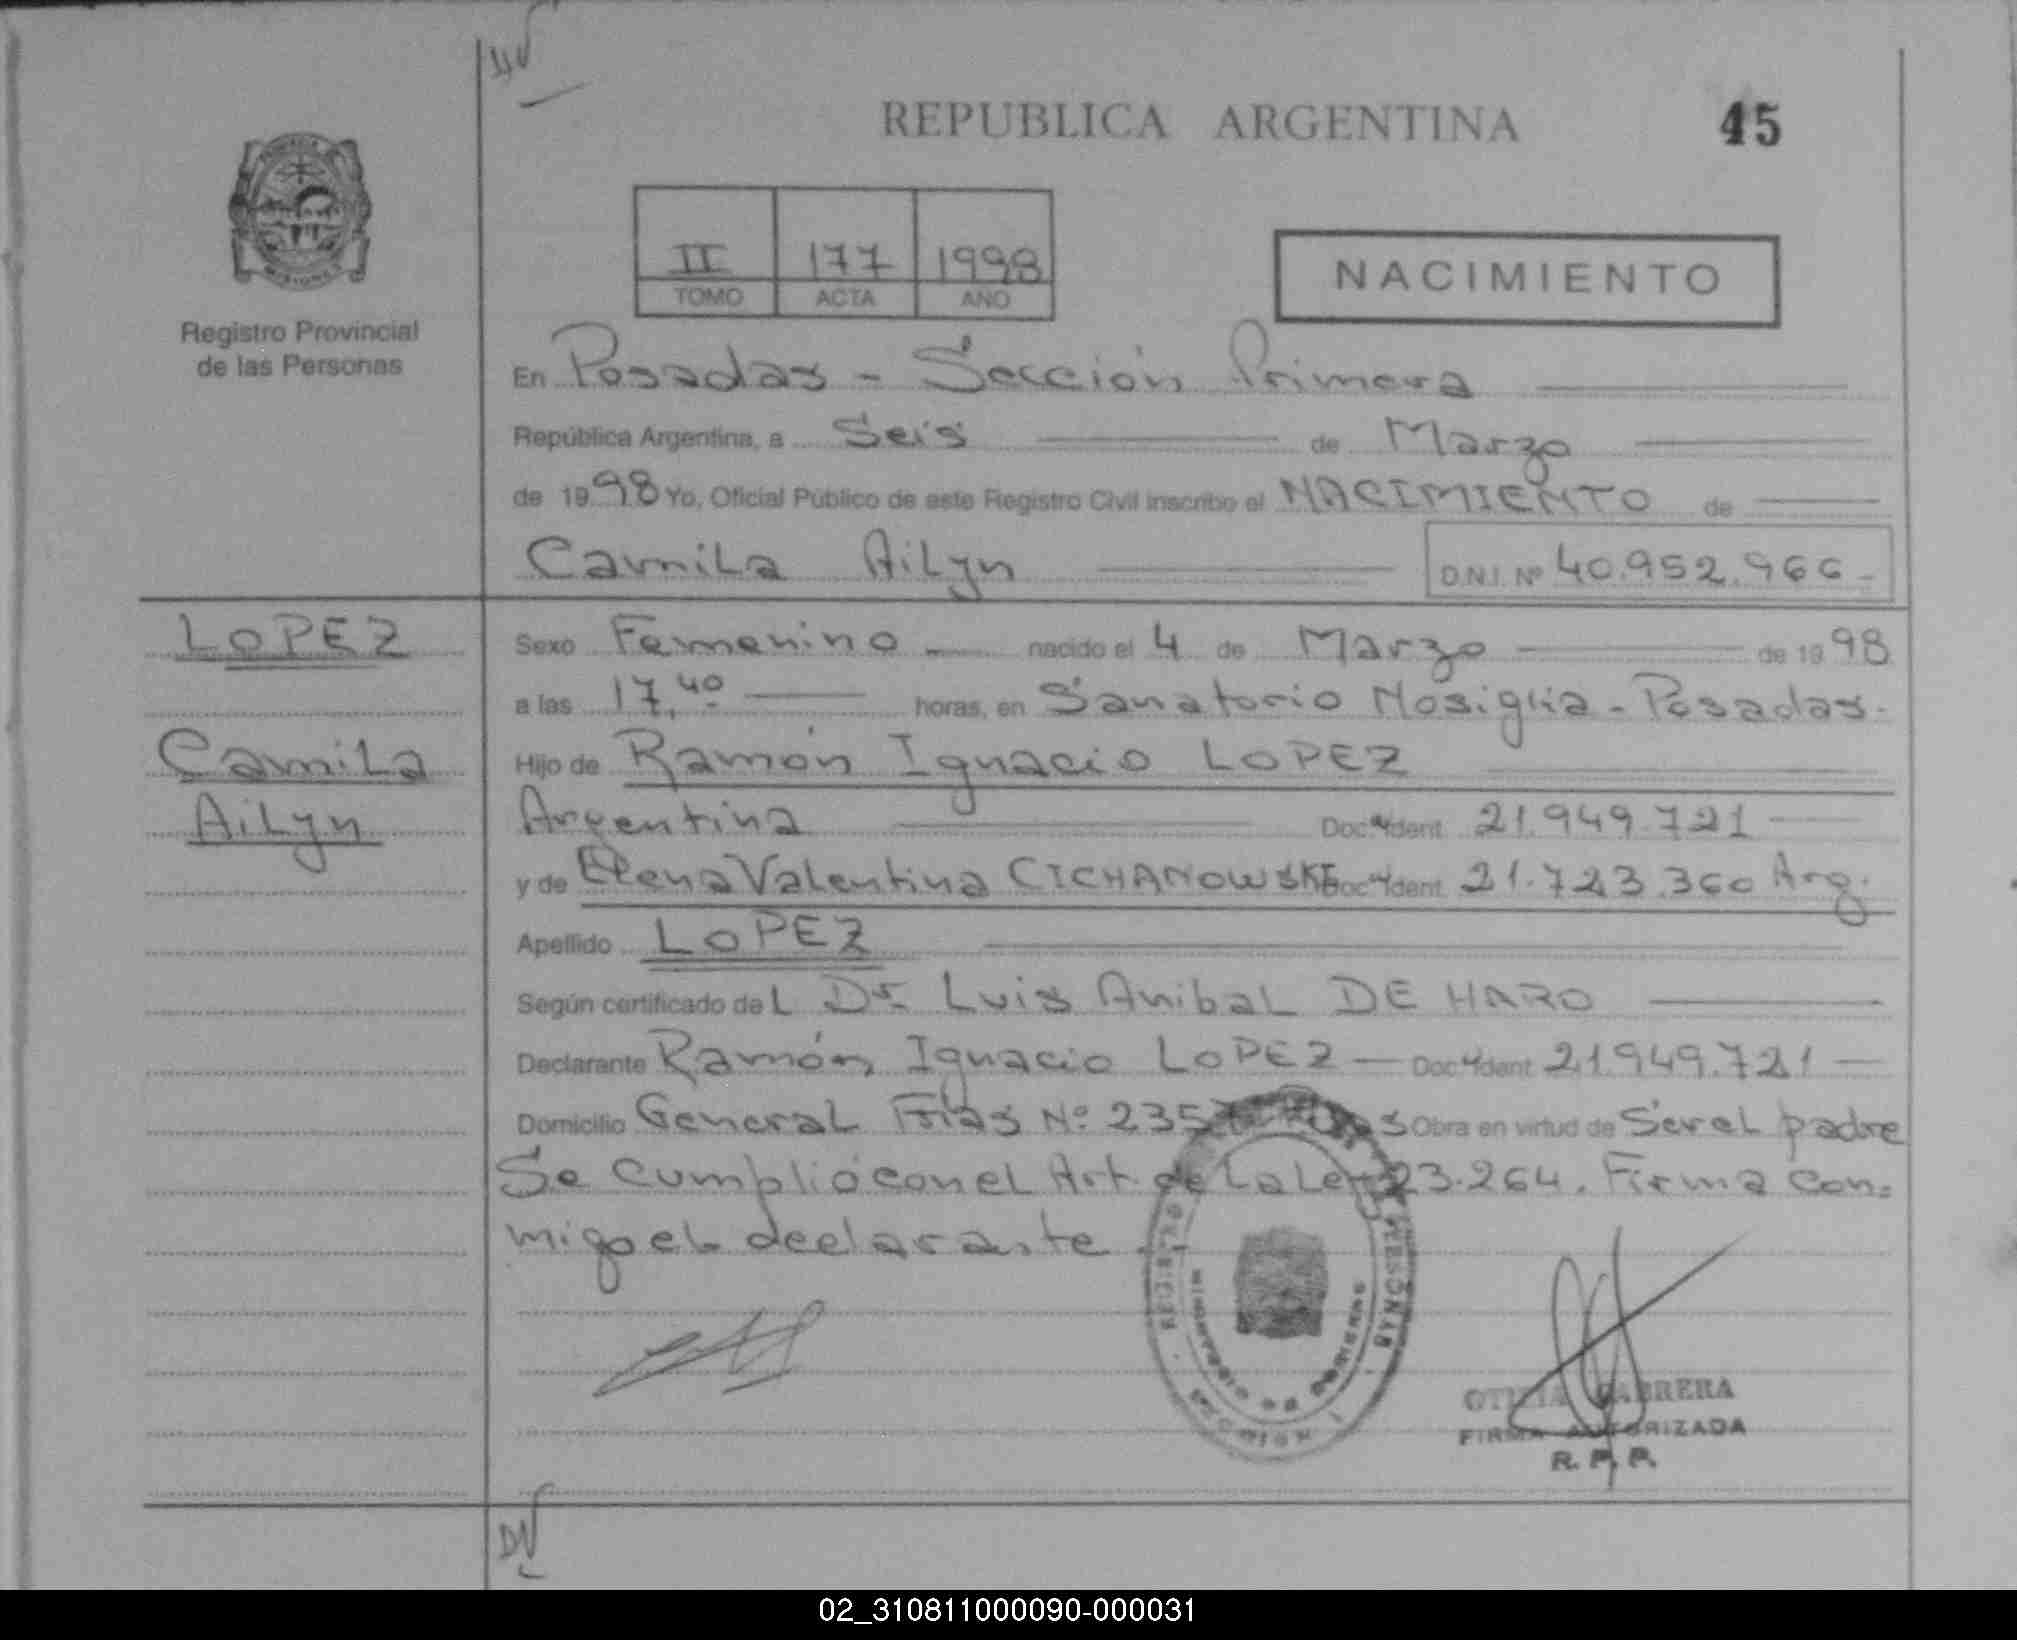 REPUBLICA ARGENTINA 45
II 177 1998
TOMO ACTA AÑO
NACIMIENTO
Registro Provincial
de las Personas
En Posadas - Sección Primera
República Argentina, a Seis de Marzo
de 1998 Yo, Oficial Público de este Registro Civil inscribo el NACIMIENTO de
Camila Ailyn D.N.I. Nº 40.952.966
LOPEZ
Camila
Ailyn
Sexo Femenino nacido el 4 de Marzo de 1998
a las 17,40 horas, en Sanatorio Nosiglia - Posadas.
Hijo de Ramón Ignacio LOPEZ
Argentina Doc. Ident. 21.949.721
y de Elena Valentina CICHANOWSKI Doc. Ident. 21.723.360 Arg.
Apellido LOPEZ
Según certificado del Dr. Luis Anibal DE HARO
Declarante Ramón Ignacio LOPEZ Doc. Ident. 21.949.721
Domicilio General Frias Nº Obra en virtud de Ser el padre
Se cumplió con el Art. de La Ley 23.264. Firma con-
migo el declarante.
REGISTRO PERSONAS
MINISTERIO DE GOBIERNO
SECCION
OTILIA CABRERA
FIRMA AUTORIZADA
R. P. P.
02_310811000090-000031